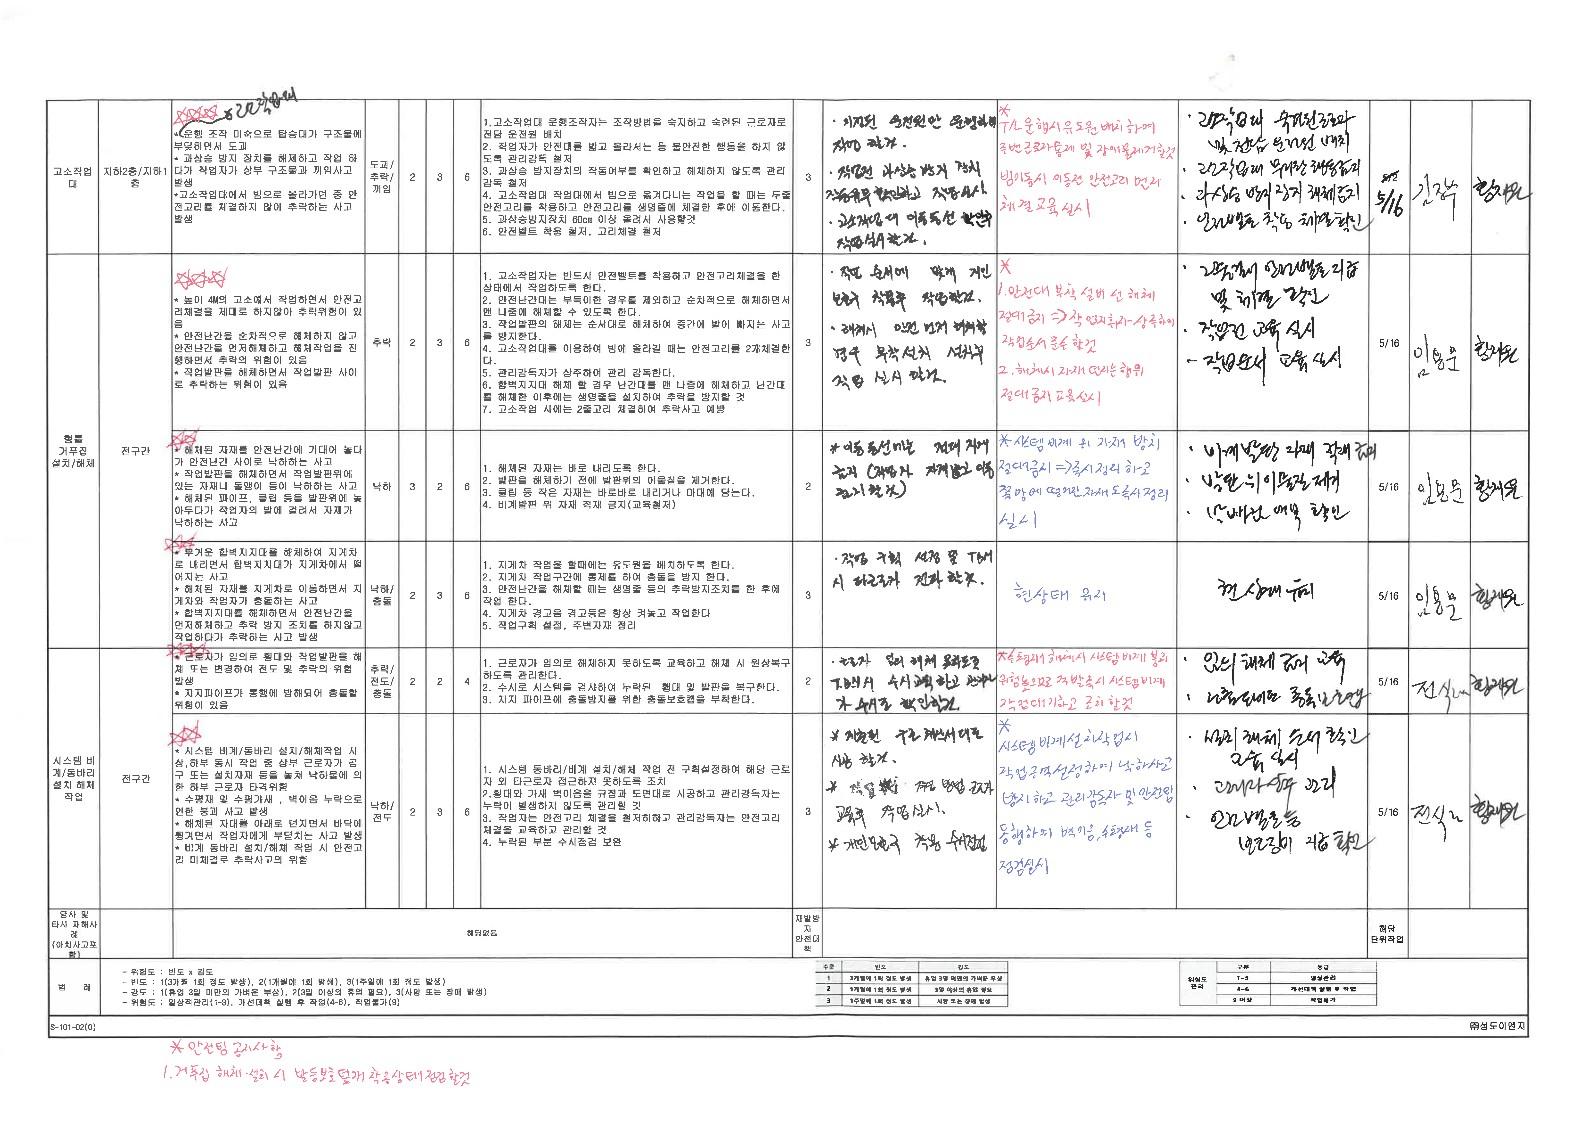 고소작업
대
지하2층/지하1
층
*고소작업대
*운행 조작 미숙으로 탑승대가 구조물에
부딪히면서 도괴
* 과상승 방지 장치를 해제하고 작업 하
다가 작업자가 상부 구조물과 끼워사고
발생
*고소작업대에서 빔으로 올라가던 중 안
전고리를 체결하지 않여 추락하는 사고
발생
도괴/
추락/
끼임
2
3
6
1.고소작업대 운행조작자는 조작방법을 숙지하고 숙련된 근로자로
전담 운전원 배치
2. 작업자가 안전대를 밟고 올라서는 등 불안전한 행동을 하지 않
도록 관리감독 철저
3. 과상승 방지장치의 작동여부를 확인하고 해체하지 않도록 관리
감독 철저
4. 고소작업대 작업대에서 빔으로 옮겨다니는 작업을 할 때는 두줄
안전고리를 착용하고 안전고리를 생명줄에 체결한 후에 이동한다.
5. 과상승방지장치 60cm 이상 올려서 사용할것
6. 안전벨트 착용 철저, 고리체결 철저
3
· 지정된 운전원만 운행하여
작업 할것.
· 작업전 과상승 방지 장치
작동유무 확인하고 작업실시
· 고소작업대 이동동선 확인후
작업실시 할것.
*
T/L운행시 유도원 배치하여
주변근로자통제 및 장애물제거할것
빔이동시 이동전 안전고리 먼저
체결 교육 실시
· 고소작업대 숙련된근로자
및 전담 운전원 배치
· 고소작업대 무리한 행동금지
· 과상승 방지 장치 해체금지
· 안전벨트 착용 체결확인
5/16
형틀
거푸집
설치/해체
전구간
* 높이 4M의 고소에서 작업하면서 안전고
리체결을 제대로 하지않아 추락위험이 있
음
* 안전난간을 순차적으로 해체하지 않고
안전난간을 먼저해체하고 해체작업을 진
행하면서 추락의 위험이 있음
* 작업발판을 해체하면서 작업발판 사이
로 추락하는 위험이 있음
추락
2
3
6
1. 고소작업자는 반드시 안전벨트를 착용하고 안전고리체결을 한
상태에서 작업하도록 한다.
2. 안전난간대는 부득이한 경우를 제외하고 순차적으로 해체하면서
맨 나중에 해체할 수 있도록 한다.
3. 작업발판의 해체는 순서대로 해체하여 중간에 발이 빠지는 사고
를 방지한다.
4. 고소작업대를 이용하여 빔에 올라갈 때는 안전고리를 2개체결한
다.
5. 관리감독자가 상주하여 관리 감독한다.
6. 합벽지지대 해체 할 경우 난간대를 맨 나중에 해체하고 난간대
를 해체한 이후에는 생명줄을 설치하여 추락을 방지할 것
7. 고소작업 시에는 2줄고리 체결하여 추락사고 예방
3
· 작업 순서에 맞게 개인
보호구 착용후 작업할것.
· 해체시 안전 먼저 해체할
경우 부착설비 설치후
작업 실시 할것.
*
1. 안전대 부착 설비 선 해체
절대금지 => 작업지휘자-상주하여
작업순서 준수 할것
2. 해체시 자재 던지는 행위
절대 금지 교육실시
· 고소작업시 안전벨트 지급
및 체결 확인
· 작업전 교육 실시
- 작업순서 교육 실시
5/16
임용문
* 해체된 자재를 안전난간에 기대어 놓다
가 안전난간 사이로 낙하하는 사고
* 작업발판을 해체하면서 작업발판위에
있는 자재나 돌맹이 등이 낙하하는 사고
* 해체된 파이프, 클립 등을 발판위에 놓
아두다가 작업자의 발에 걸려서 자재가
낙하하는 사고
낙하
3
2
6
1. 해체된 자재는 바로 내리도록 한다.
2. 발판을 해체하기 전에 발판위의 이물질을 제거한다.
3. 클립 등 작은 자재는 바로바로 내리거나 마대에 담는다.
4. 비계발판 위 자재 적재 금지(교육철저)
2
* 이동 동선에는 절대 자재
금지
* 시스템 비계 위 자재 방치
절대금지 => 즉시 정리 하고
쪽망에 떨어진 자재도 즉시정리
실시
· 비계발판 자재 적재 금지
· 발판 위 이물질 제거
5/16
임용문
* 무거운 합벽지지대를 해체하여 지게차
로 내리면서 합벽지지대가 지게차에서 떨
어지는 사고
* 해체된 자재를 지게차로 이동하면서 지
게차와 작업자가 충돌하는 사고
* 합벽지지대를 해체하면서 안전난간을
먼저해체하고 추락 방지 조치를 하지않고
작업하다가 추락하는 사고 발생
낙하/
충돌
2
3
6
1. 지게차 작업을 할때에는 유도원을 배치하도록 한다.
2. 지게차 작업구간에 통제를 하여 충돌을 방지 한다.
3. 안전난간을 해체할 때는 생명줄 등의 추락방지조치를 한 후에
작업 한다.
4. 지게차 경고음 경고등은 항상 켜놓고 작업한다
5. 작업구획 설정, 주변자재 정리
3
· 작업 구획 선정 및 TBM
시 타근로자 전파 할것.
현상태 유지
현 상태 유지
5/16
임용문
시스템 비
계/동바리
설치 해체
작업
전구간
* 근로자가 임의로 횡대와 작업발판을 해
체 또는 변경하여 전도 및 추락의 위험
발생
* 지지파이프가 통행에 방해되어 충돌할
위험이 있음
추락/
전도/
충돌
2
2
4
1. 근로자가 임의로 해체하지 못하도록 교육하고 해체 시 원상복구
하도록 관리한다.
2. 수시로 시스템을 검사하여 누락된 횡대 및 발판을 복구한다.
3. 지지 파이프에 충돌방지를 위한 충돌보호캡을 부착한다.
2
· 근로자 임의 해체 못하도록
TBM시 수시교육 하고 관리자
가 수시로 확인할것.
*수평재 해체시 시스템비계 붕괴
위험높으므로 적발즉시 시스템비계
작업대기하고 조치 할것
· 임의 해체 금지 교육
5/16
전식
* 시스템 비계/동바리 설치/해체작업 시
상,하부 동시 작업 중 상부 근로자가 공
구 또는 설치자재 등을 놓쳐 낙하물에 의
한 하부 근로자 타격위험
* 수평재 및 수평가새 , 벽이음 누락으로
인한 붕괴 사고 발생
* 해체된 자재를 아래로 던지면서 바닥에
튕기면서 작업자에게 부딪치는 사고 발생
* 비계 동바리 설치/해체 작업 시 안전고
리 미체결로 추락사고의 위험
낙하/
전도
2
3
6
1. 시스템 동바리/비계 설치/해체 작업 전 구획설정하여 해당 근로
자 외 타근로자 접근하지 못하도록 조치
2.횡대와 가새 벽이음을 규정과 도면대로 시공하고 관리감독자는
누락이 발생하지 않도록 관리할 것
3. 작업자는 안전고리 체결을 철저히하고 관리감독자는 안전고리
체결을 교육하고 관리할 것
4. 누락된 부분 수시점검 보완
3
교육후 작업실시.
* 개인보호구 착용 수시점검
*
시스템비계설치작업시
작업구역선정하여 낙하사고
방지하고 관리감독자 및 안전팀
동행하의 벽이음,수평재 등
점검실시
· 설치 해체 순서 확인
교육 실시
· 안전벨트 등
보호장비 지급 확인
5/16
전식
당사 및
타사 재해사
례
(아차사고포
함)
해당없음
재발방
지
안전대
책
해당
단위작업
범 례
- 위험도 : 빈도 x 강도
- 빈도 : 1(3개월 1회 정도 발생), 2(1개월에 1회 발생), 3(1주일에 1회 정도 발생)
- 강도 : 1(휴업 3일 미만의 가벼운 부상), 2(3일 이상의 휴업 필요), 3(사망 또는 장애 발생)
- 위험도 : 일상적관리(1-3), 개선대책 실행 후 작업(4-6), 작업불가(9)
수준 빈도 강도
1 3개월에 1회 정도 발생 휴업 3일 미만의 가벼운 부상
2 1개월에 1회 정도 발생 3일 이상의 휴업 필요
3 1주일에 1회 정도 발생 사망 또는 장애 발생
위험도
관리
구분 등급
1-3 일상관리
4-6 개선대책 실행 후 작업
9 이상 작업불가
S-101-02(0)
㈜성도이엔지
* 안전팀 공지사항
1. 거푸집 해체·설치 시 발등보호덮개 착용상태 점검할것